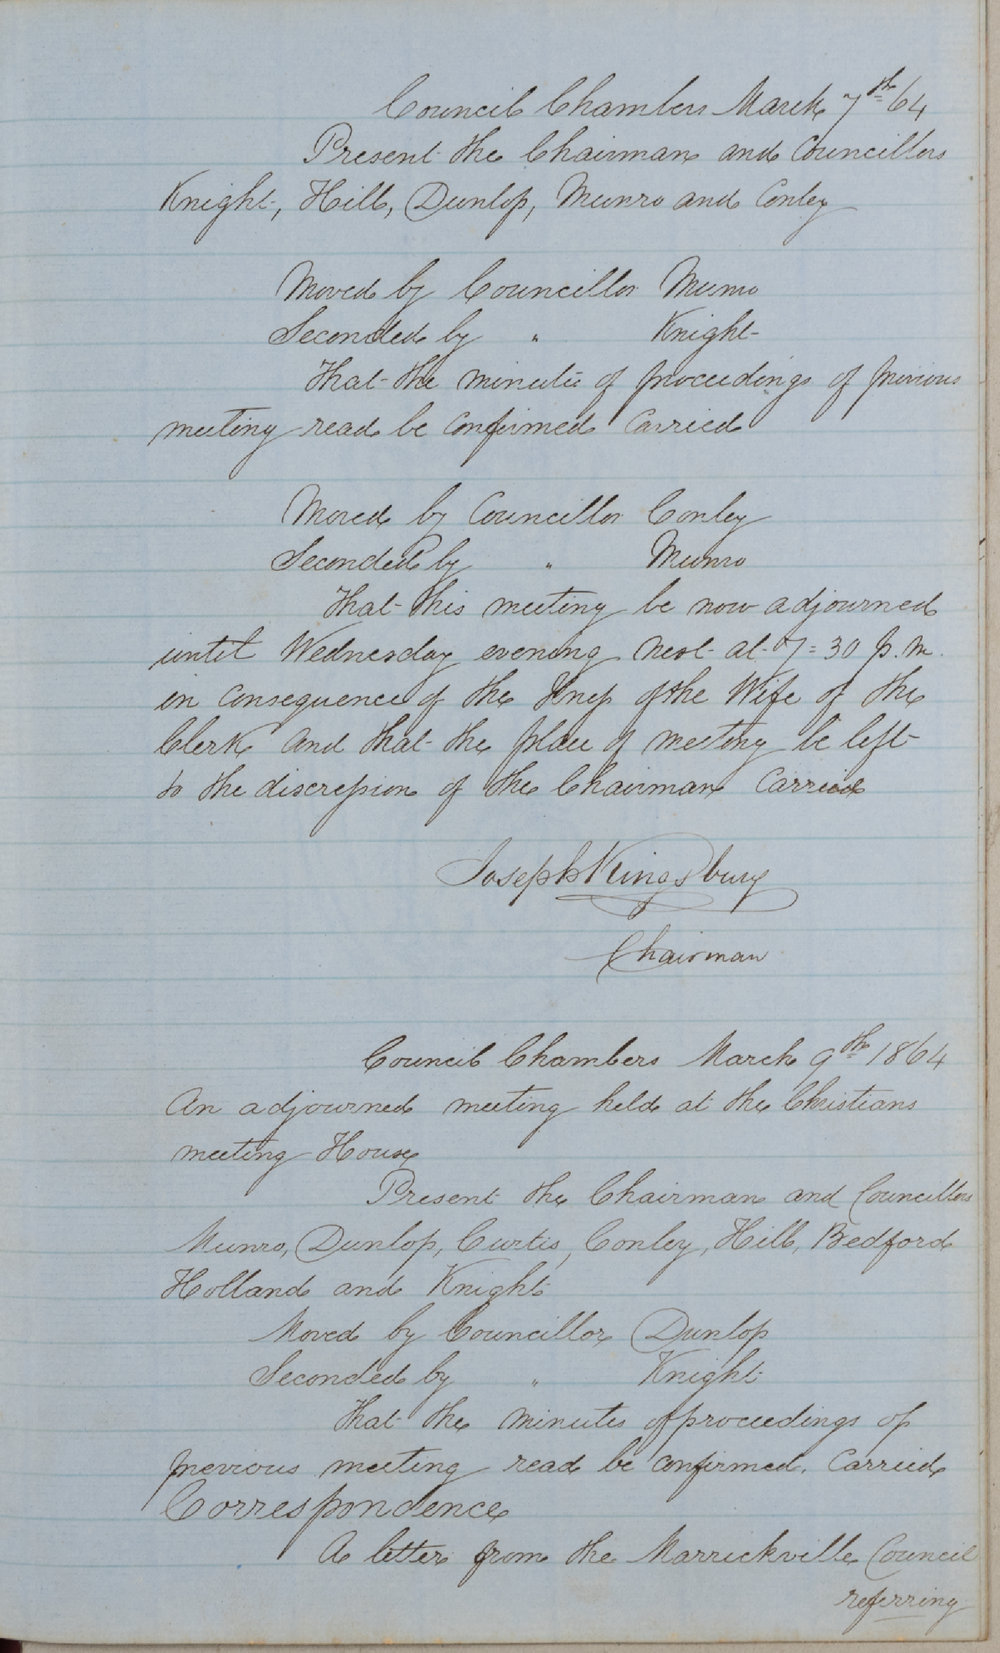 Council Chambers March 7th 64
Present the Chairman and Councillors
Knight, Hill, Dunlop, Munro and Conley
Moved by Councillor Munro
Seconded by " Knight
That the minutes of proceedings of previous
meeting read be confirmed Carried
Moved by Councillor Conley
Seconded by " Munro
That this meeting be now adjourned
until Wednesday evening next at 7=30 p.m.
in consequence of the of the Wife of the
Clerk and that the place of meeting be left
to the discression of the Chairman Carried
Joseph Kingsbury
Chairman
Council Chambers March 9th 1864
An adjourned meeting held at the Christians
meeting House
Present the Chairman and Councillors
Munro, Dunlop, Curtis, Conley, Hill, Bedford
Holland and Knight
Moved by Councillor Dunlop
Seconded by " Knight
That the minutes of proceedings of
previous meeting read be confirmed. Carried
Correspondence
A letter from the Marrickville Council
referring